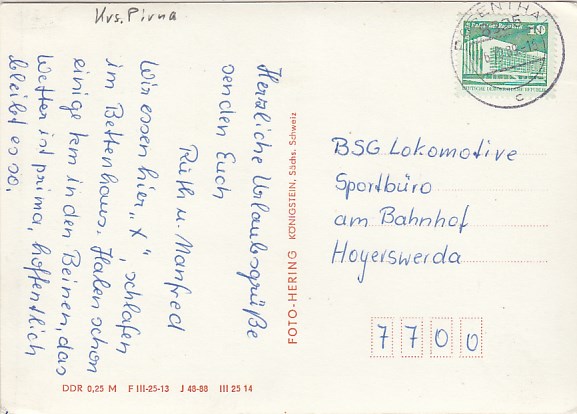 Krs. Pirna
Herzliche Urlaubsgrüße
senden Euch
Ruth u. Manfred
Wir essen hier „X“, schlafen
im Bettenhaus. Haben schon
einige km in den Beinen, das
Wetter ist prima, hoffentlich
bleibt es so.
FOTO-HERING KÖNIGSTEIN, Sächs. Schweiz
10
DEUTSCHE DEMOKRATISCHE REPUBLIK
8325
c
BSG Lokomotive
Sportbüro
am Bahnhof
Hoyerswerda
7700
DDR 0,25 M F III-25-13 J 48-88 III 25 14